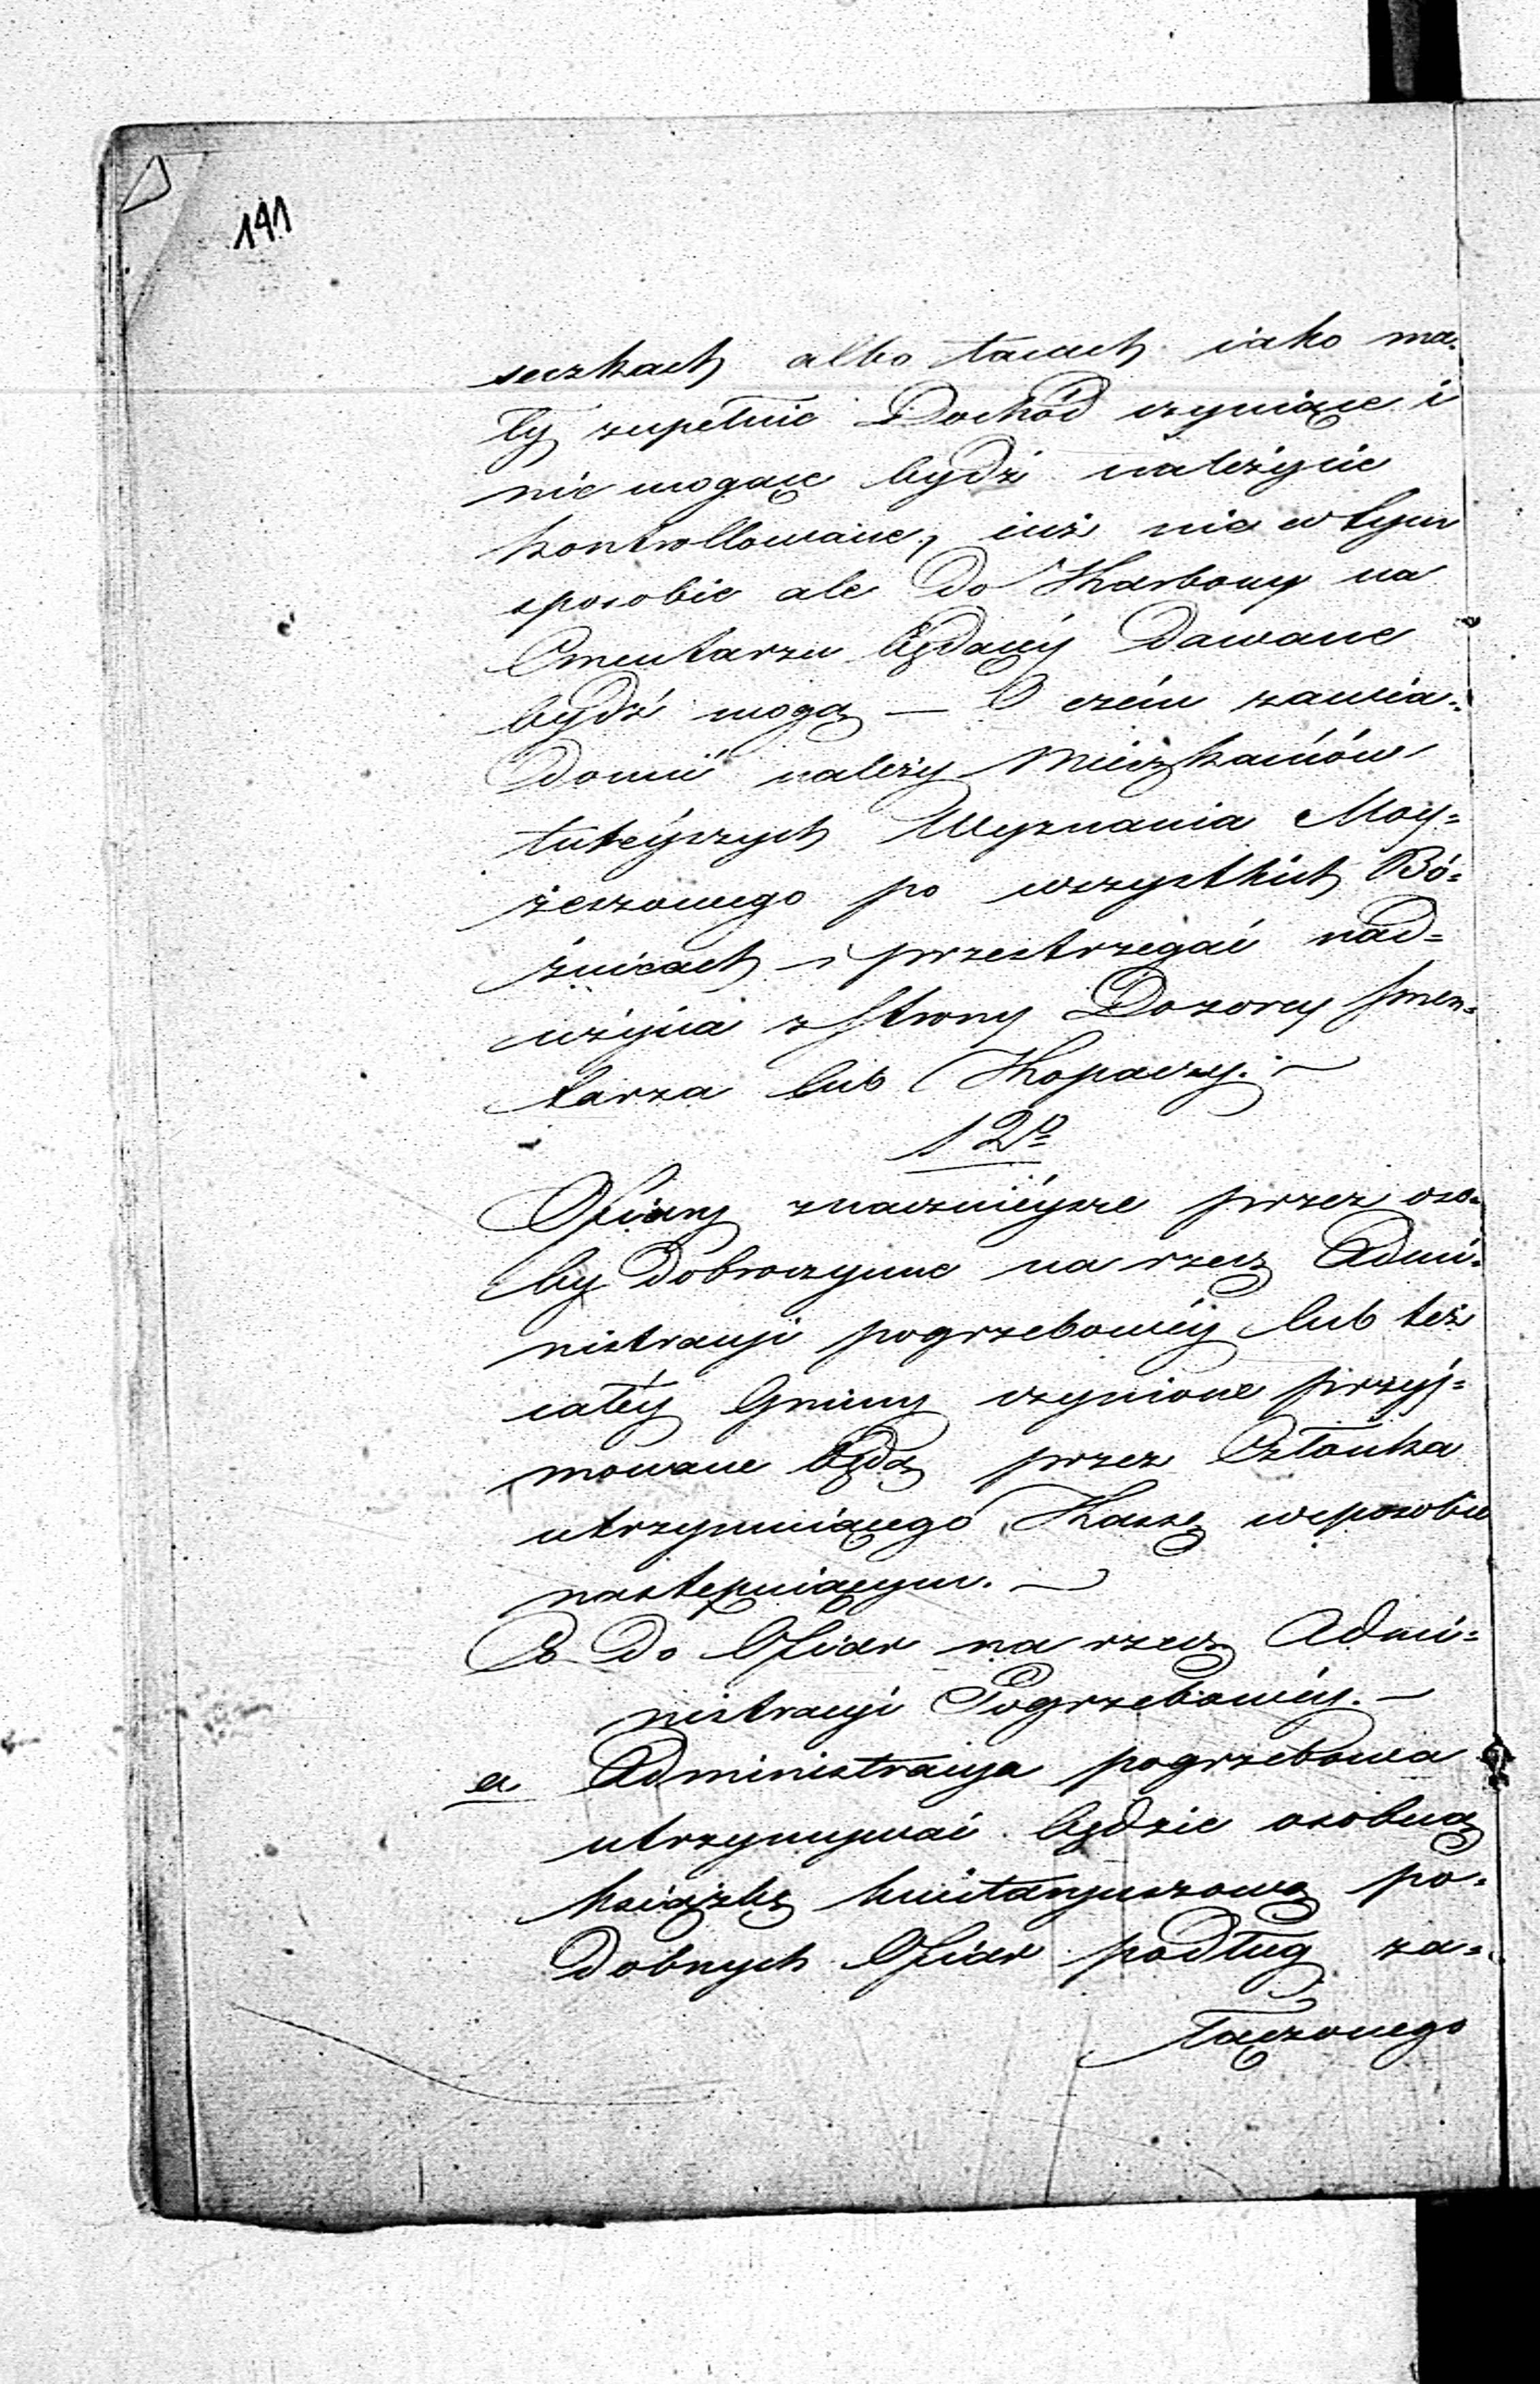 141
seczkach albo tacach iako ma-
ły zupełnie Dochód czyniące i
nie mogące bydź należycie
kontrollowane, iuż nie w tym
sposobie ale do Skarbony na
Cmentarzu będącéy dawane
bydź mogą — O czém zawia-
domić należy Mieszkańców
tuteyszych Wyznania Moy-
żeszowego po wszystkich Bó-
żnicach i przestrzegać nad-
użycia z strony Dozorcy Smen-
tarza lub Kopaczy. —
12º
Ofiary znacznieysze przez oso-
by dobroczynne na rzecz Admi-
nistracyi pogrzebowéy lub też
całéy Gminy czynione przyi-
mowane będą przez Członka
utrzymuiącego Kassę w sposobie
następuiącym. —
Co do Ofiar na rzecz Admi-
nistracyi Pogrzebowéy. —
a Administracya pogrzebowa
utrzymywać będzie osobną
książkę kwitaryuszową po-
dobnych Ofiar podług za-
łączonego